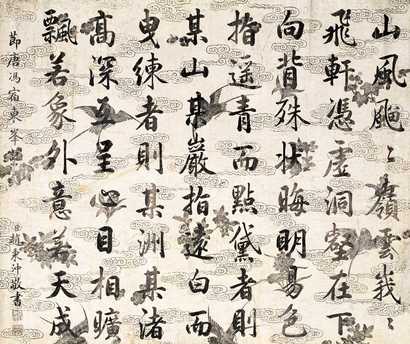 山風〻嶺雲峩〻
飛軒憑虛洞壑在下
向背殊狀晦明易色
指遥青而點黛者則
某山某巖指遠白而
曳練者則某洲某渚
高深互呈心目相曠
飄若象外意若天成
節唐馮宿東峯記
臣趙秉沖敬書